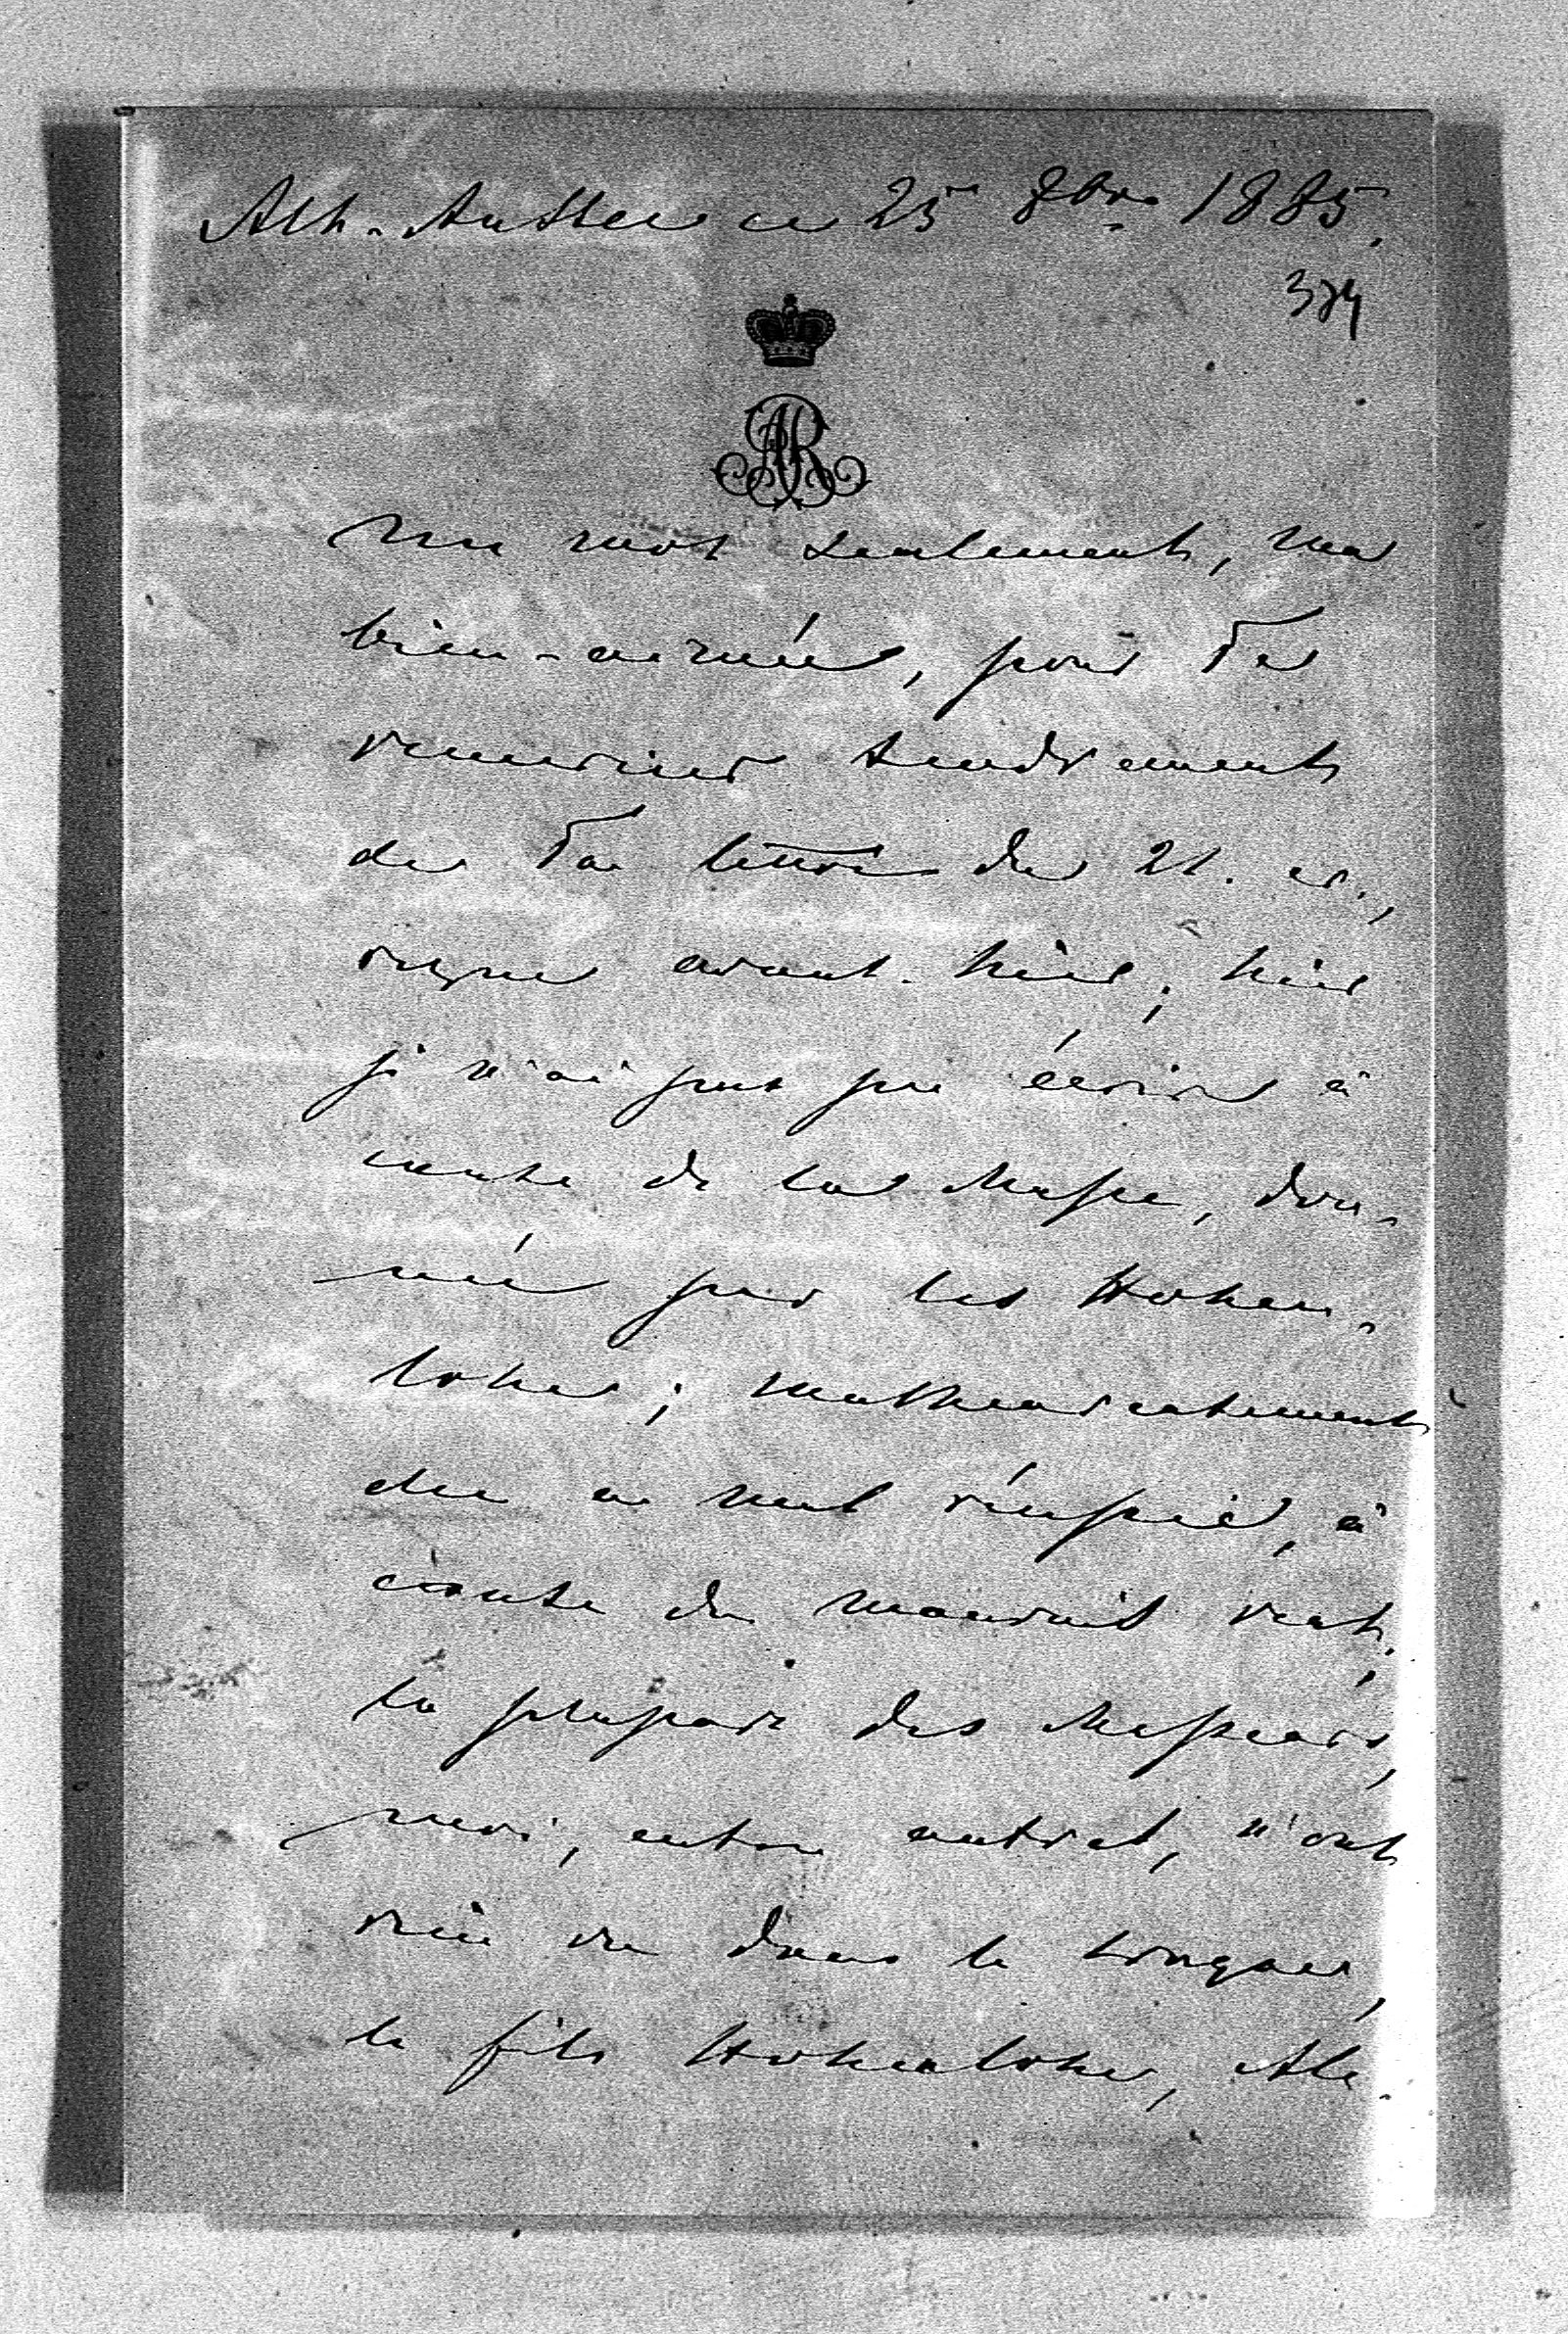 Alt-Aussee ce 25 8bre 1885.
374
AR
Un mot seulement, ma
bien-aimée, pour Te
remercier tendrement
de Ta lettre du 21. cr.,
reçue avant-hier; hier
je n'ai pas pu écrire à
cause de la chasse, don-
née par les Hohen-
lohe; malheureusement
elle a mal réussie, à
cause du mauvais vent;
la plupart des chasseurs,
moi, entre autres, n'ont
rien vu dans le traques,
le fils Hohenlohe, Ale-